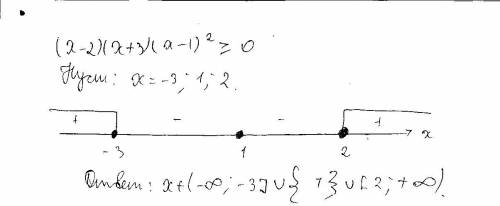 (x-2)(x+3)(x-1)² ≥ 0
Нули: x = -3; 1; 2.
+ - - + x
-3 1 2
Ответ: x ∈ (-∞; -3] ∪ { 1 } ∪ [2; +∞).